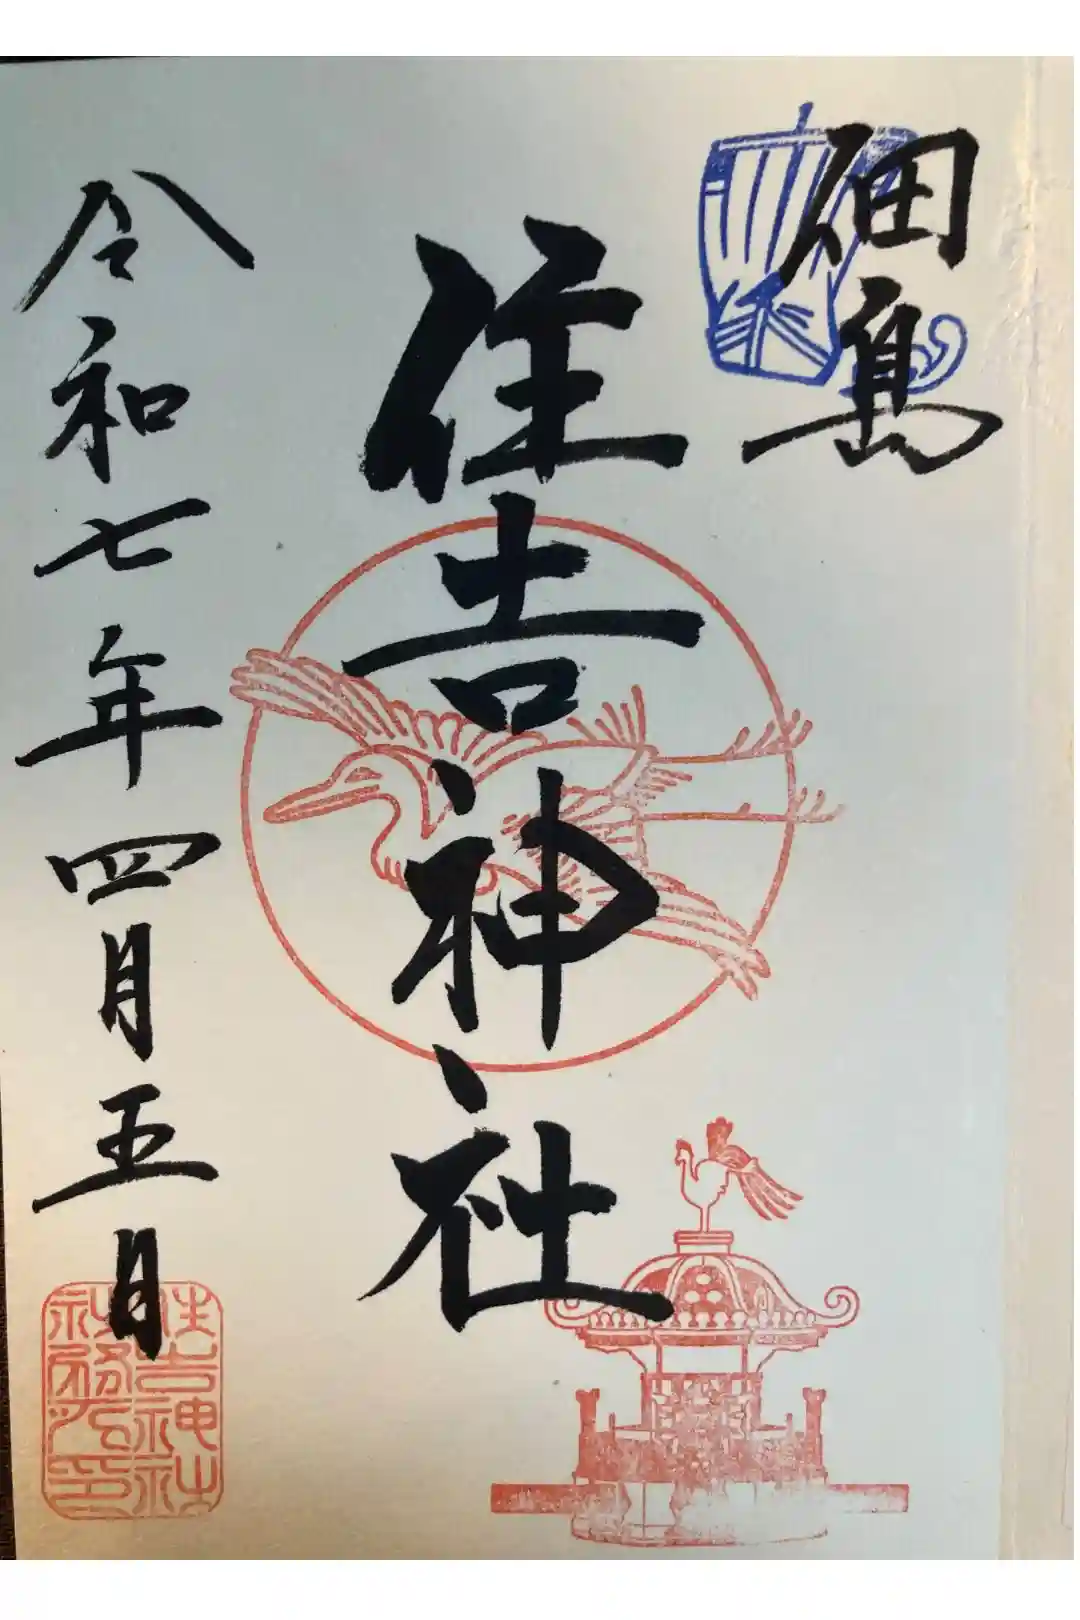 佃島
住吉神社
令和七年四月五日
住吉神社
社務所印